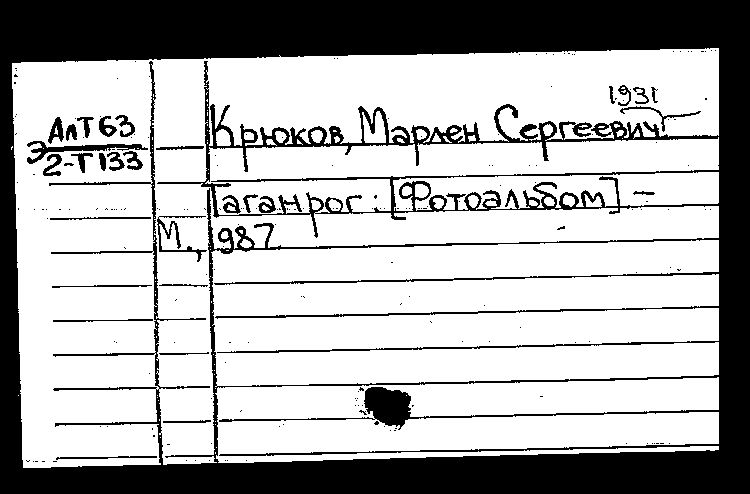 1931
АлТ63
Э 2-Т133
Крюков, Марлен Сергеевич.
Таганрог : [Фотоальбом] –
М., 1987